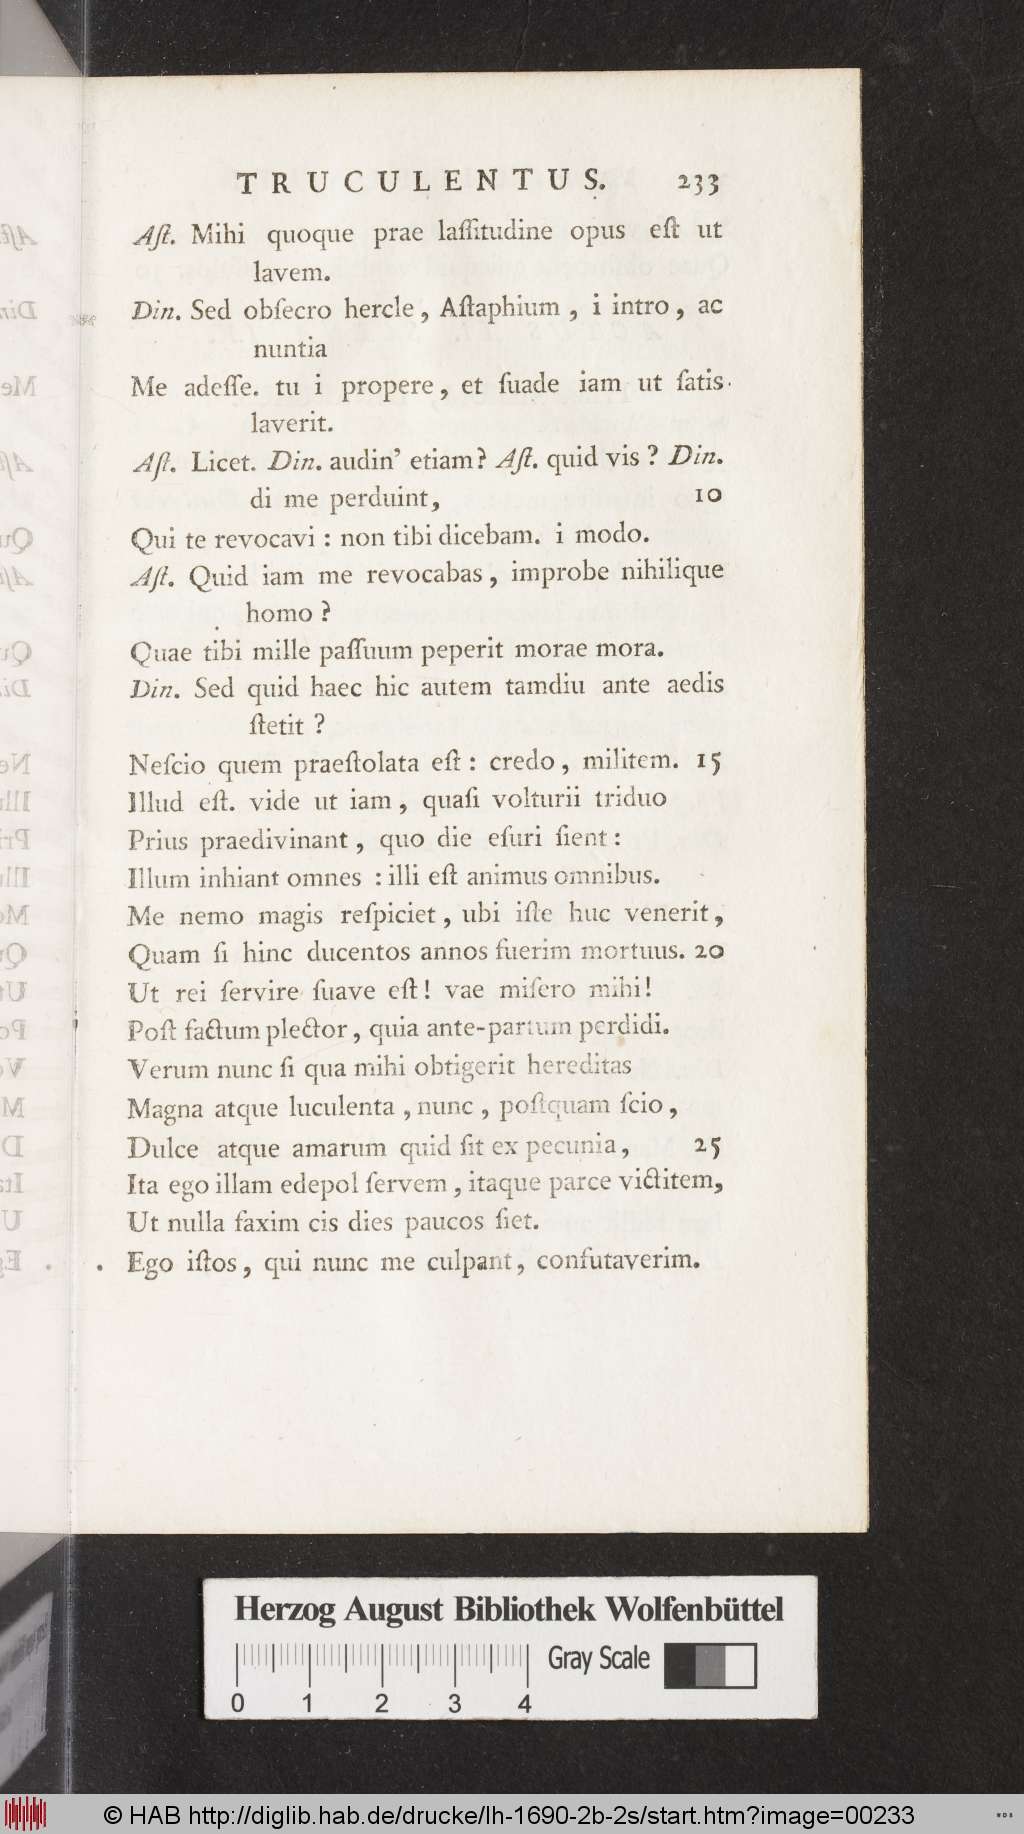 TRUCULENTUS. 233
Aſt. Mihi quoque prae laſſitudine opus eſt ut
lavem.
Din. Sed obſecro hercle, Aſtaphium, i intro, ac
nuntia
Me adeſſe. tu i propere, et ſuade iam ut ſatis
laverit.
Aſt. Licet. Din. audin' etiam? Aſt. quid vis? Din.
di me perduint, 10
Qui te revocavi: non tibi dicebam. i modo.
Aſt. Quid iam me revocabas, improbe nihilique
homo?
Quae tibi mille paſſuum peperit morae mora.
Din. Sed quid haec hic autem tamdiu ante aedis
ſtetit?
Neſcio quem praeſtolata eſt: credo, militem. 15
Illud eſt. vide ut iam, quaſi volturii triduo
Prius praedivinant, quo die eſuri ſient:
Illum inhiant omnes: illi eſt animus omnibus.
Me nemo magis reſpiciet, ubi iſte huc venerit,
Quam ſi hinc ducentos annos fuerim mortuus. 20
Ut rei ſervire ſuave eſt! vae miſero mihi!
Poſt factum plector, quia ante-partum perdidi.
Verum nunc ſi qua mihi obtigerit hereditas
Magna atque luculenta, nunc, poſtquam ſcio,
Dulce atque amarum quid ſit ex pecunia, 25
Ita ego illam edepol ſervem, itaque parce victitem,
Ut nulla faxim cis dies paucos ſiet.
Ego iſtos, qui nunc me culpant, confutaverim.
Herzog August Bibliothek Wolfenbüttel
Gray Scale
0 1 2 3 4
© HAB http://diglib.hab.de/drucke/lh-1690-2b-2s/start.htm?image=00233